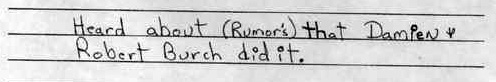 Heard about (Rumor's) that Damien &
Robert Burch did it.